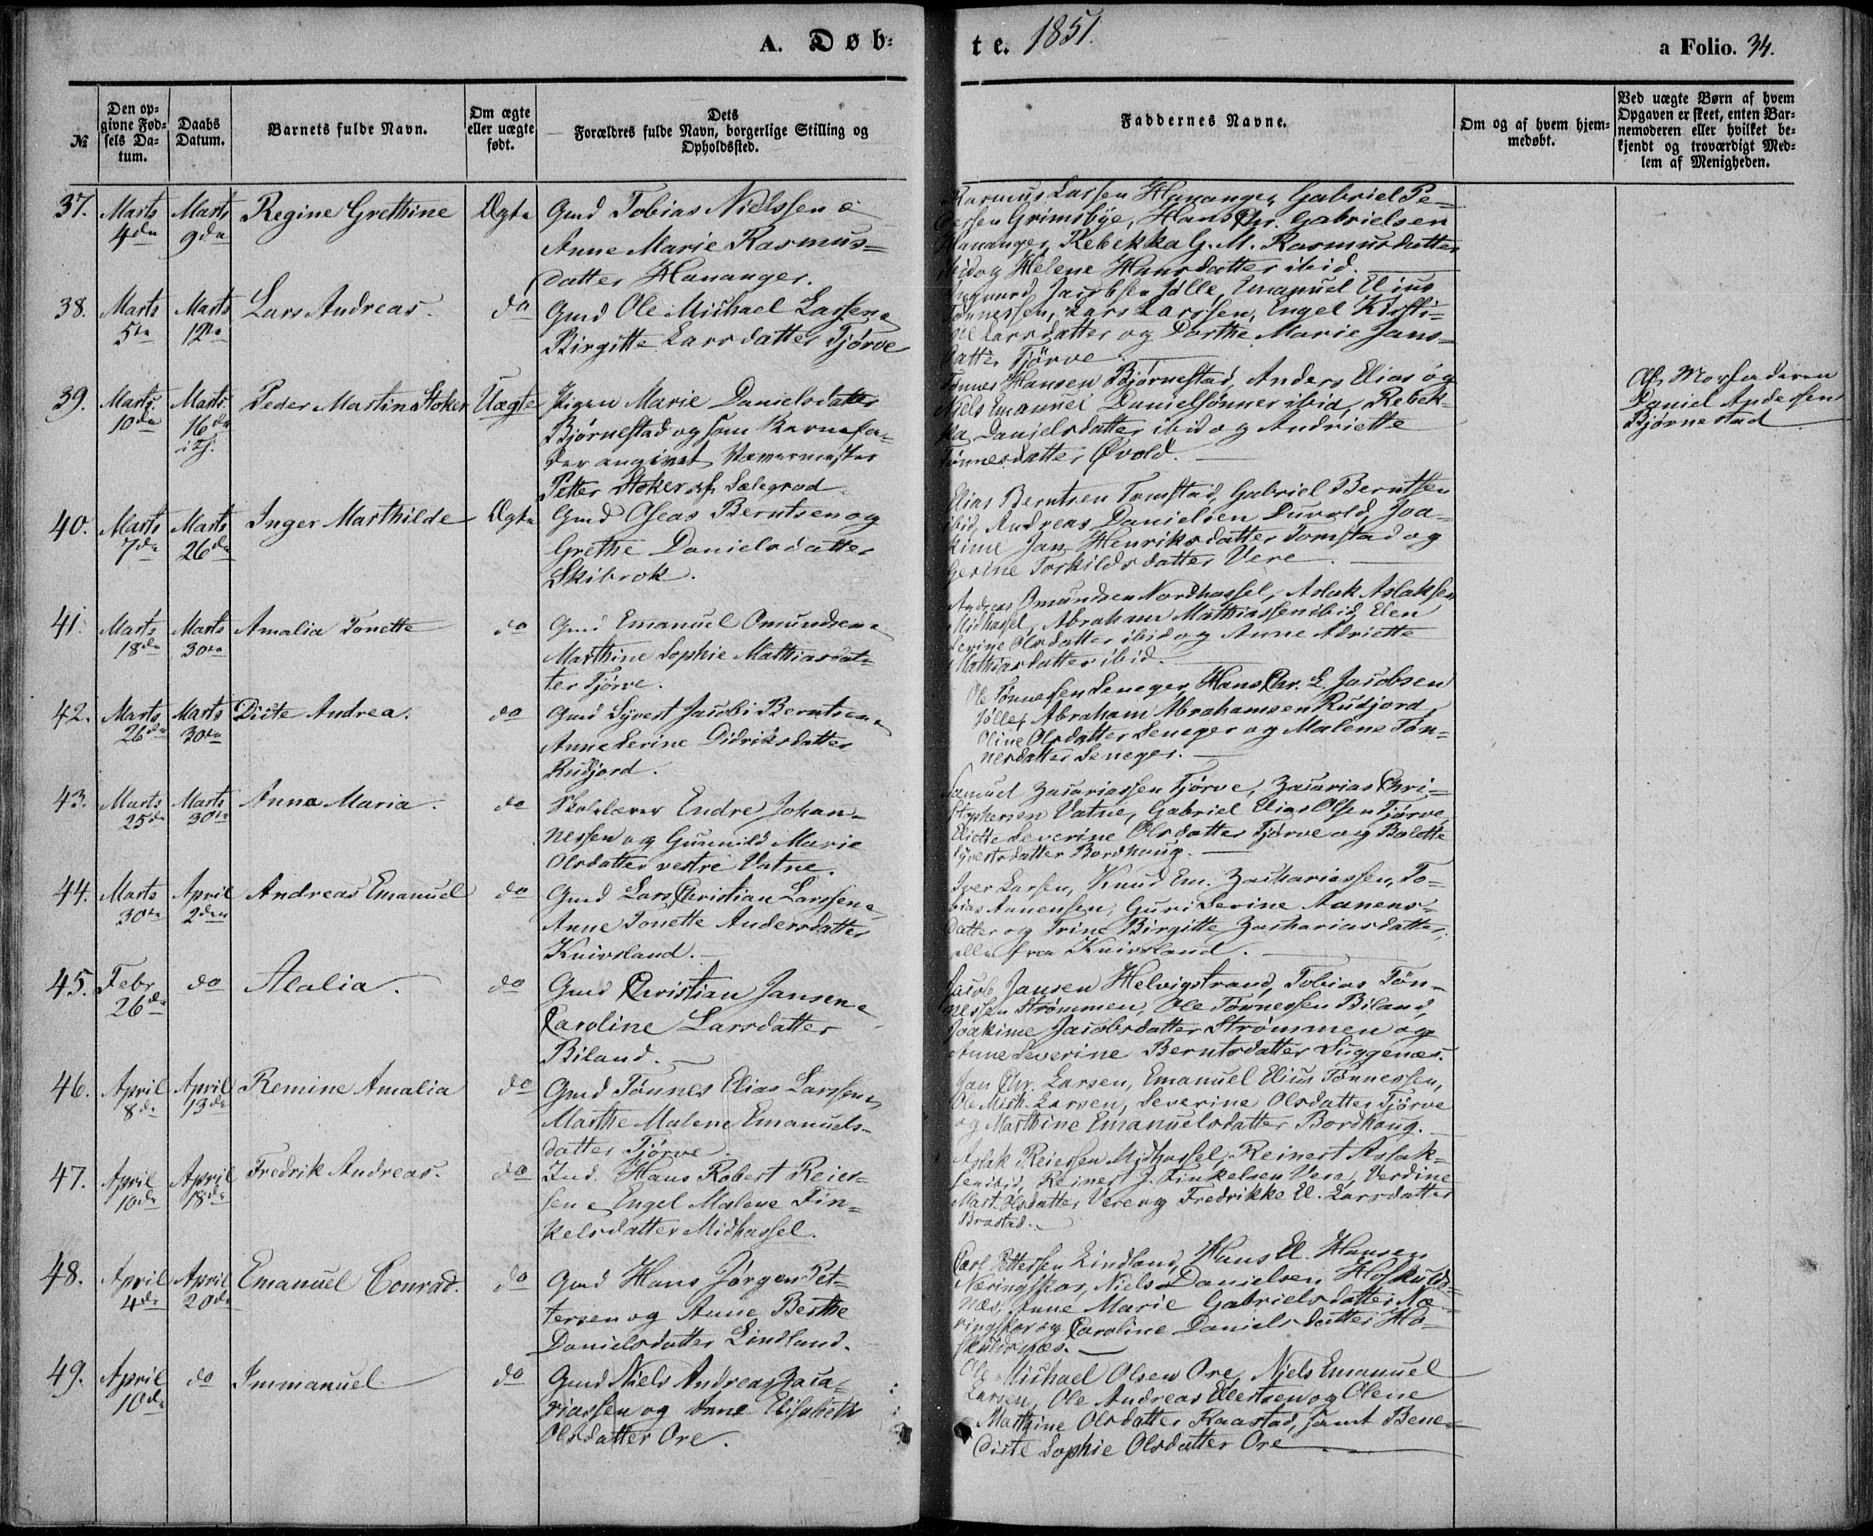 A. Døb-
te. 1851.
a Folio. 34.
№
Den op-
givne Fød-
sels Da-
tum.
Daabs
Datum.
Barnets fulde Navn.
Om ægte
eller uægte
født.
Dets
Forældres fulde Navn, borgerlige Stilling og
Opholdssted.
Faddernes Navne.
Om og af hvem hjem-
medøbt.
Ved uægte Børn af hvem
Opgaven er skeet, enten Bar-
nemoderen eller hvilket be-
kjendt og troværdigt Med-
lem af Menigheden.
37. Marts 4de
Marts 9de
Regine Grethine
Ægte
Gmd Tobias Nielssen &
Anne Marie Rasmus=
datter Hananger.
Rasmus Larssen Hananger, Gabriel Pe-
dersen Grimsbye, Hans Chr. Gabrielsen
Hananger, Rebekka G. M. Rasmusdatter
ibid og Helene Hansdatter ibid.
38. Marts 5te
Marts 12te
Lars Andreas.
do
Gmd Ole Michael Larssen &
Birgitte Larsdatter Tjørve
Jacobsen Jølle, Emanuel Elius
Tønnessen, Lars Larssen, Engel Kirsti-
ne Larsdatter og Dorthe Marie Jans-
datter Tjørve
39. Marts 10de
Marts 16de
i Kj.
Peder Martin Stoker
Uægte
Pigen Marie Danielsdatter
Bjørnestad og som Barnefa-
der angivet
Petter Stoker af Sælegrod
Tønnes Hansen Bjørnestad, Anders Elias og
Niels Emanuel Danielsønner ibid, Rebek-
ka Danielsdatter ibid og Andriette
Tønnesdatter Øvold.
Af Morfaderen
Daniel Andersen
Bjørnestad
40. Marts 7de
Marts 26de
Inger Marthilde
Ægte
Gmd Oseas Berntsen og
Grethe Danielsdatter
Skibrok.
Elias Berntsen Tomstad, Gabriel Berntsen
ibid, Andreas Danielsen Duvold, Joa-
kime Jan Henriksdatter Tomstad og
Gerine Torkildsdatter Vere.
41. Marts 18de
Marts 30te
Amalia Tonette
do
Gmd Emanuel Omundsen &
Marthine Sophie Mathiasdat-
ter Tjørve.
Andreas Omundsen Nordhassel, Aslak Aslaksen
Midhassel, Abraham Mathiassen ibid, Elen
Serine Olsdatter ibid og Anne Adriette
Mathiasdatter ibid.
42. Marts 26de
Marts 30te
Ditte Andrea.
do
Gmd Syvert Jacobi Berntsen &
Anne Serine Didriksdatter
Rudjord.
Ole Tønnessen Seneger, Hans Chr. E. Jacobsen
Jølle, Abraham Abrahamsen Rudjord,
Oline Olsdatter Seneger og Malene Tøn-
nesdatter Seneger.
43. Marts 25de
Marts 30te
Anna Maria.
do
Skolelærer Endre Johan-
nessen og Gunnild Marie
Olsdatter vestre Vatne.
Samuel Zacariassen Tjørve, Zacarias Chri-
stophersen Vatne, Gabriel Elias Olsen Tjørve,
Eliette Severine Olsdatter Tjørve og Bolette
Syvertsdatter Bordhoug.
44. Marts 30te
April 2den
Andreas Emanuel
do
Gmd Lars Christian Larssen &
Anne Tonette Andersdatter
Knivsland.
Iver Larsen, Knud Em. Zachariassen, To-
bias Aanensen, Guri Serine Aanens-
datter og Trine Birgitte Zachariasdatter,
alle fra Knivsland.
45. Febr 26de
do
Alalia.
do
Gmd Christian Jansen &
Caroline Larsdatter
Biland.
Jacob Jansen Helvigstrand, Tobias Tøn-
nessen Strømmen, Ole Tønnessen Biland,
Joakime Jacobsdatter Strømmen og
Anne Severine Berntsdatter Suggenæs.
46. April 8de
April 13de
Remine Amalia
do
Gmd Tønnes Elias Larssen &
Marthe Malene Emanuels-
datter Tjørve
Jan Chr. Larsen, Emanuel Elius Tønnessen,
Ole Mich. Larsen, Severine Olsdatter Tjørve
og Marthine Emanuelsdatter Bordhoug.
47. April 10de
April 18de
Fredrik Andreas.
do
Ind. Hans Robert Reier-
sen & Engel Malene Fin-
kelsdatter Midhassel.
Aslak Reiersen Midhassel, Reinert Aslak-
sen ibid, Reinert J. Finkelsen Vere, Verdine
Mart. Olsdatter Vere og Fredrikke El. Larsdatter
Brastad.
48. April 4de
April 20de
Emanuel Conrad.
do
Gmd Hans Jørgen Pet-
tersen og Anne Berthe
Danielsdatter Lindland.
Carl Pettersen Lindland, Hans El. Hansen
Næringskar, Niels Danielsen Hoskulds-
næs, Anne Marie Gabrielsdatter Næ-
ringskar og Caroline Danielsdatter Ho-
skuldsnæs.
49. April 10de
do
Immanuel
do
Gmd Niels Andreas Zaca-
riassen og Anne Elisabeth
Olsdatter Ore.
Ole Michael Olsen Ore, Niels Emanuel
Larsen, Ole Andreas Eilertsen og Olene
Marthine Olsdatter Raastad, samt Bene-
dicte Sophie Olsdatter Ore